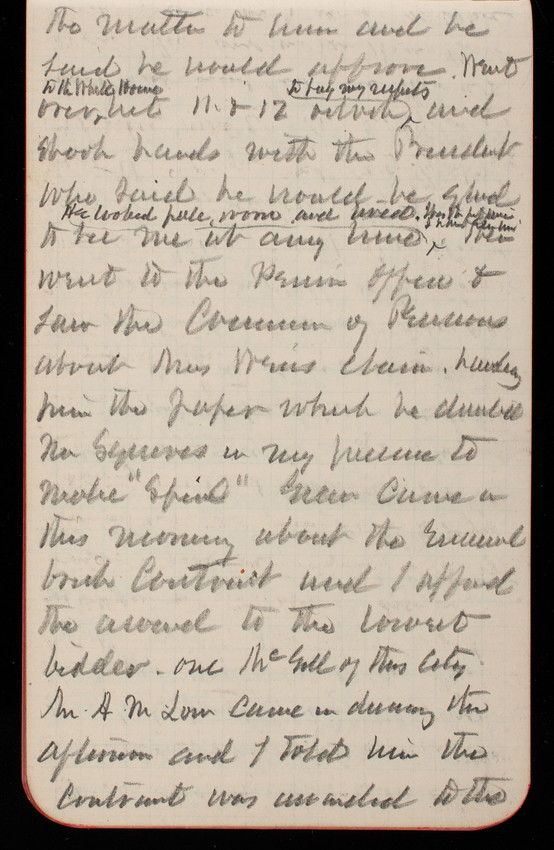 the matter to him and he
said he would approve. Went
to the White House to pay my respects
over, bet 11 & 12 oclock, and
shook hands with the President
who said he would be glad
He looked pale, worn and
to see me at any time, Then
went to the Pension Office &
saw the Commsn of Pensions
about Mrs claim. handing
him the paper which he directed
Mr Squires in my presence to
make "Special" Green came in
this morning about the Enamel
brick Contract and I affred
the award to the lowest
bidder. one McGill of this City.
Mr. A M Low came in during the
afternoon and I told him the
Contract was awarded to the